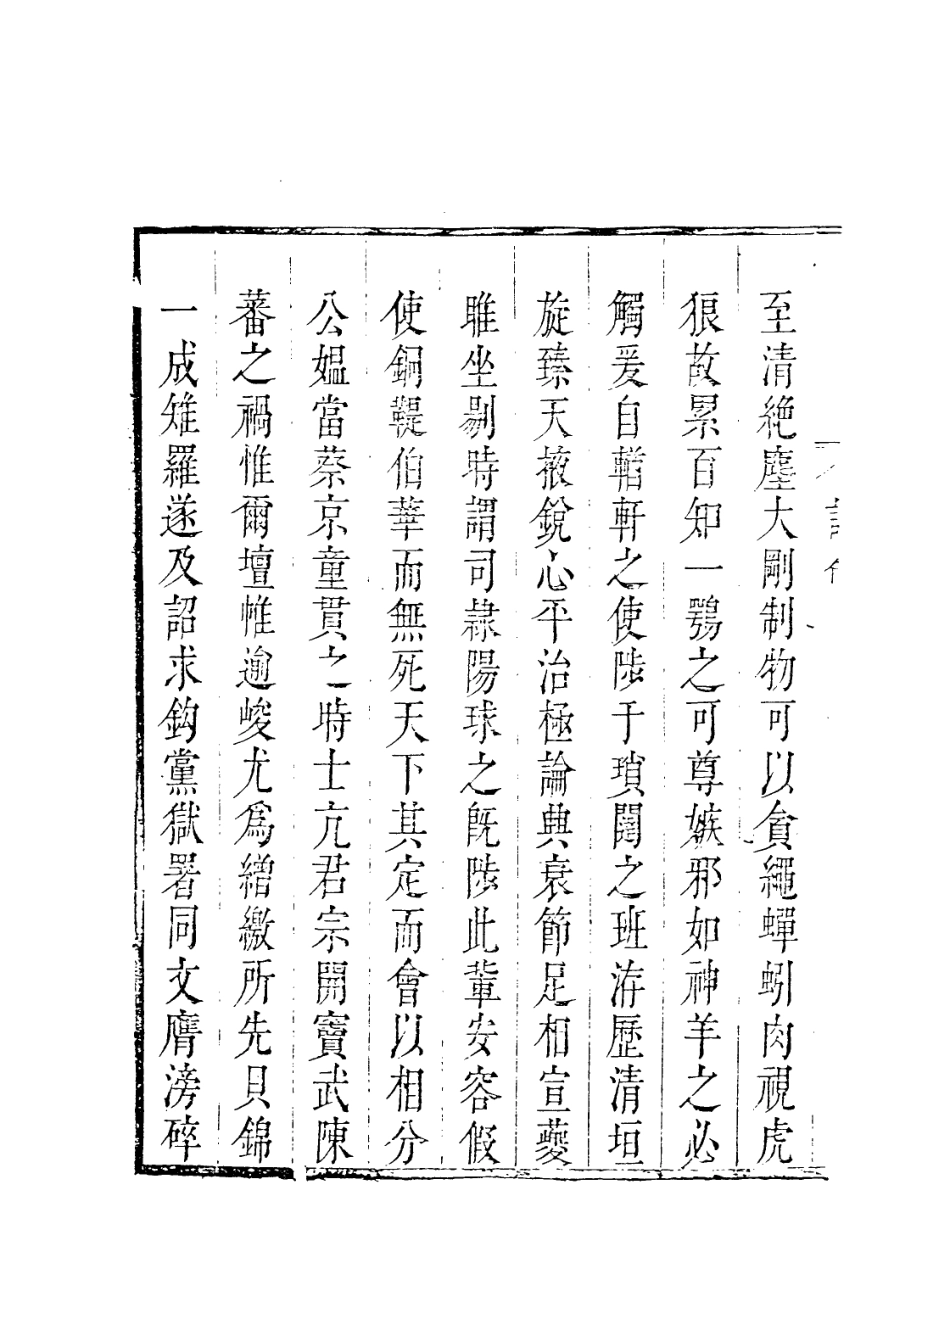 至清絶塵大剛制物可以貪繩蟬蚓肉視虎
狼故累百知一鶚之可尊嫉邪如神羊之必
觸爰自輶軒之使陟于瑣闥之班洊歷清垣
旋臻天掖銳心平治極論典衰節足相宣夔
雎坐剔時謂司隸陽球之旣陟此輩安容假
使銅鞮伯華而無死天下其定而會以相分
公媪當蔡京童貫之時士亢君宗開竇武陳
蕃之禍惟爾壇帷逾峻尤爲繒繳所先貝錦
一成雉羅遂及詔求鈎黨獄署同文膺滂碎